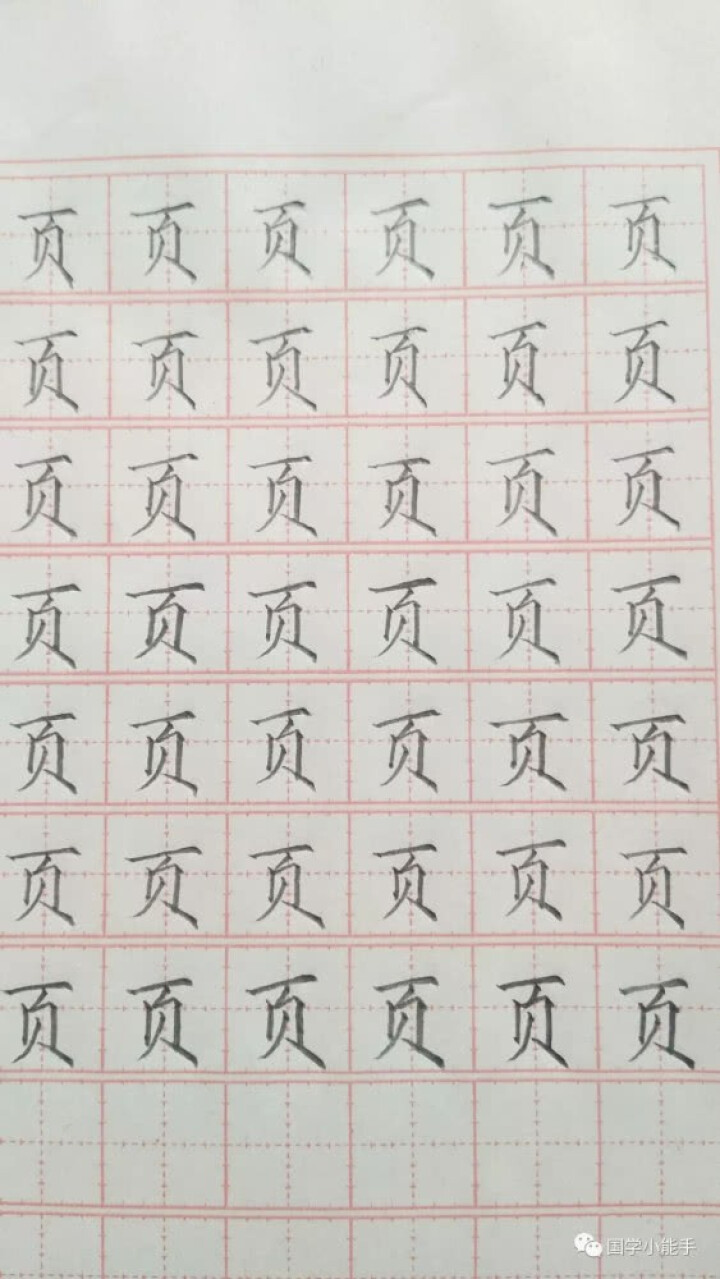 页 页 页 页 页 页
页 页 页 页 页 页
页 页 页 页 页 页
页 页 页 页 页 页
页 页 页 页 页 页
页 页 页 页 页 页
页 页 页 页 页 页
国学小能手